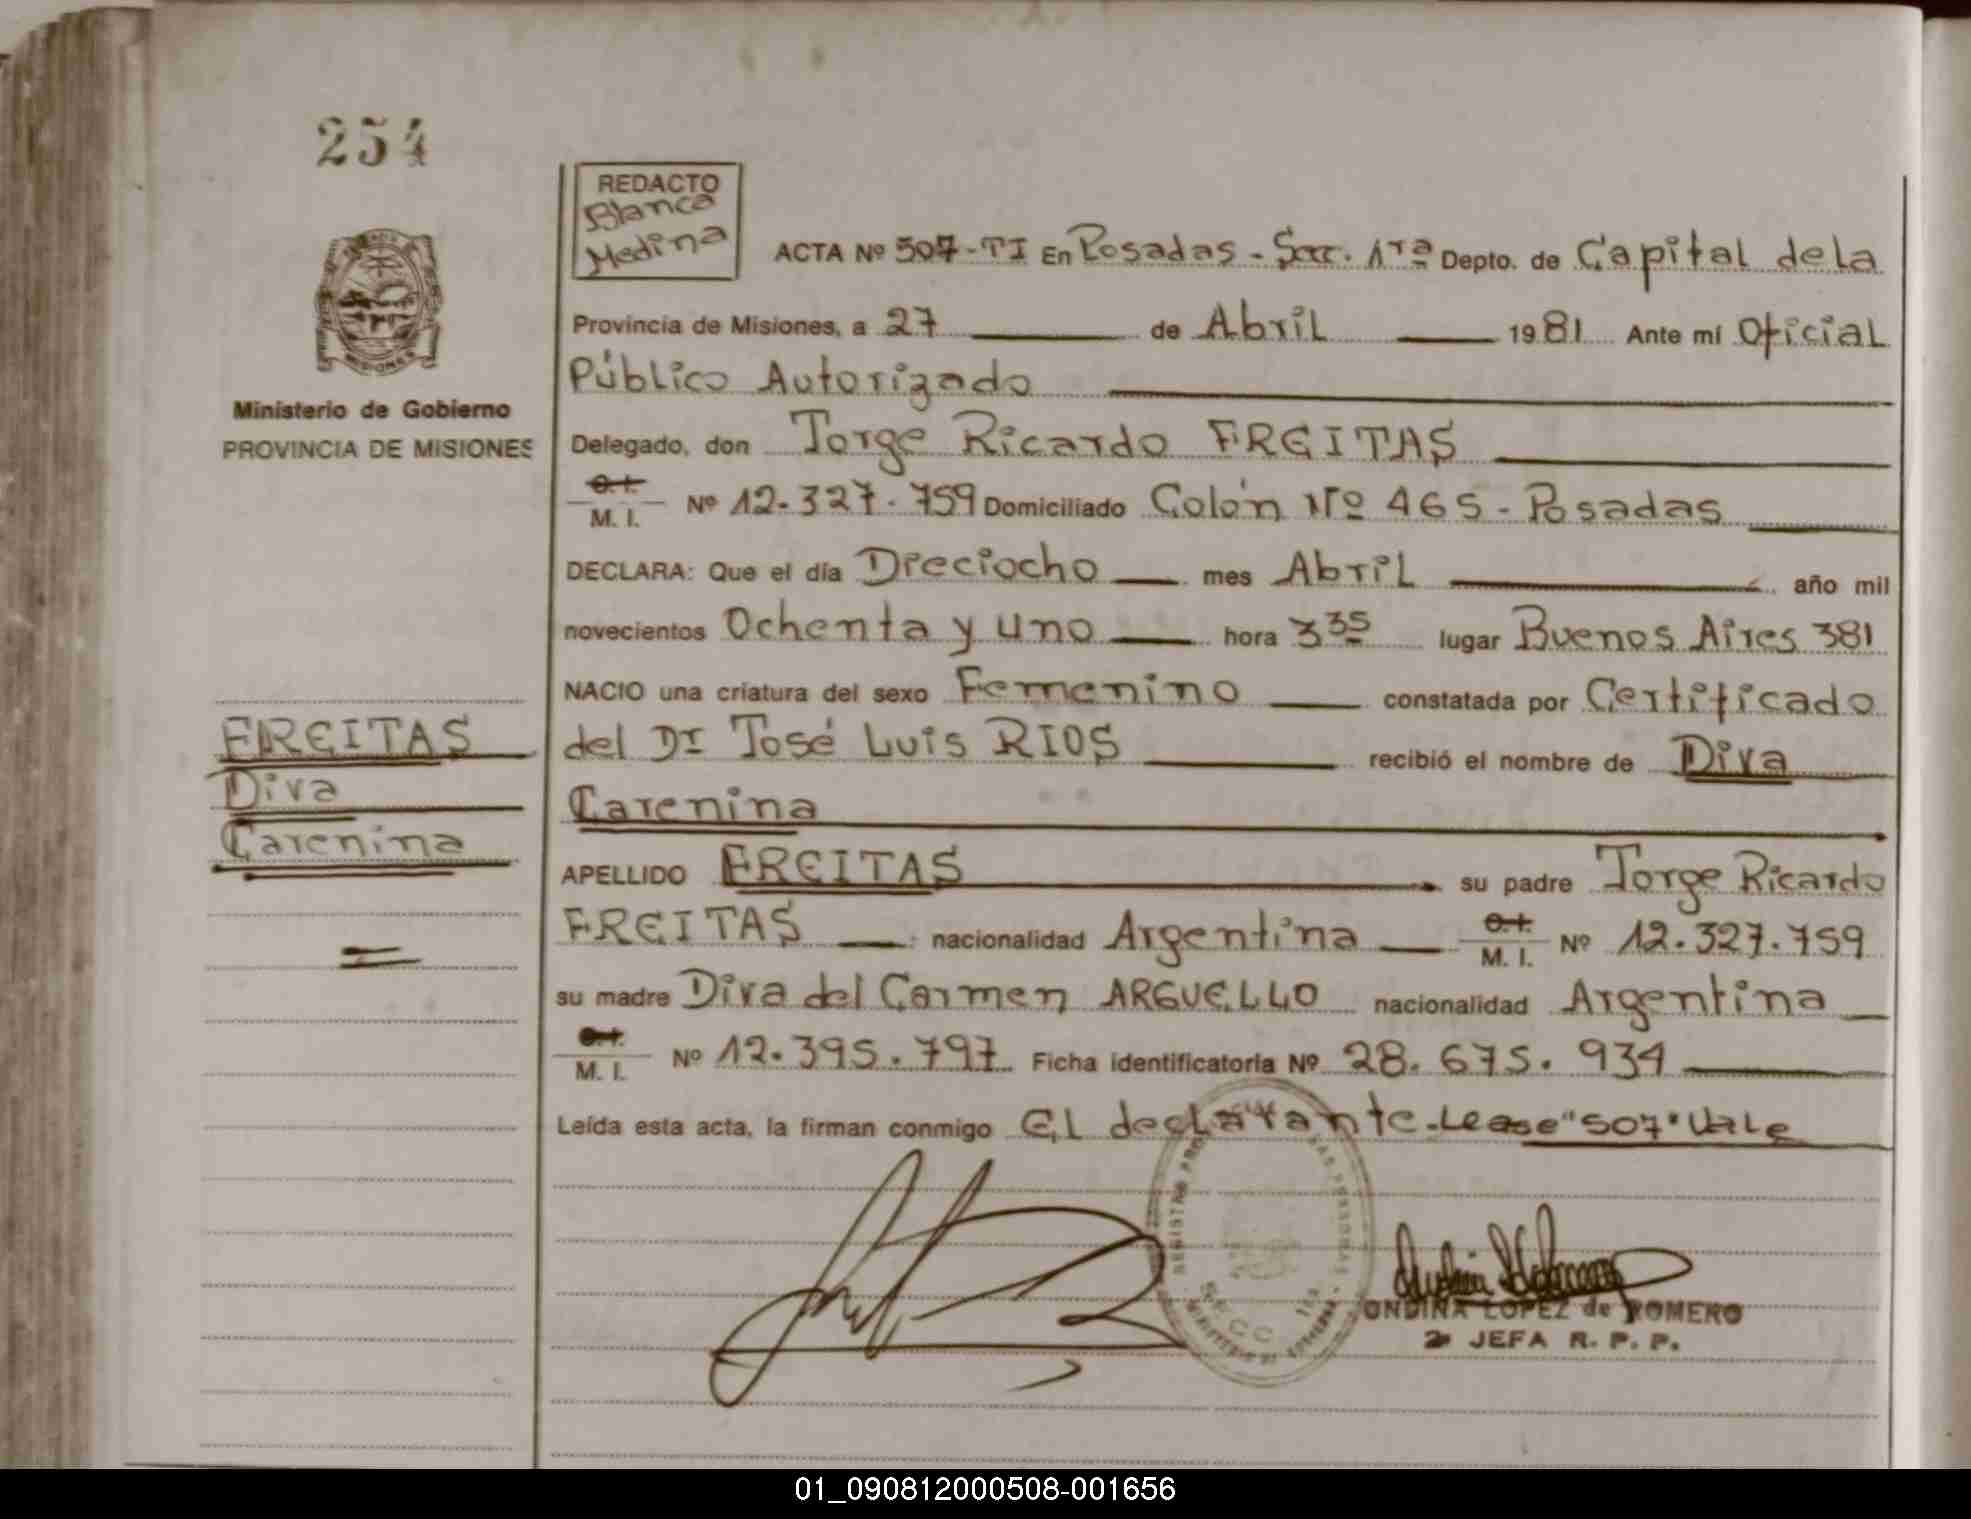 254
REDACTO
Blanca
Medina
Ministerio de Gobierno
PROVINCIA DE MISIONES
FREITAS
Diva
Carenina
ACTA Nº 507-TI En Posadas - Secc. 1ra Depto. de Capital de la
Provincia de Misiones, a 27 de Abril 1981 Ante mí Oficial
Público Autorizado
Delegado, don Jorge Ricardo FREITAS
C. I. M. I. Nº 12.327.759 Domiciliado Colón Nº 465 - Posadas
DECLARA: Que el día Dieciocho mes Abril año mil
novecientos Ochenta y uno hora 3 35 lugar Buenos Aires 381
NACIO una criatura del sexo Femenino constatada por Certificado
del Dr José Luis RIOS recibió el nombre de Diva
Carenina
APELLIDO FREITAS su padre Jorge Ricardo
FREITAS nacionalidad Argentina C. I. M. I. Nº 12.327.759
su madre Diva del Carmen ARGUELLO nacionalidad Argentina
C. I. M. I. Nº 12.395.797 Ficha identificatoria Nº 28.675.934
Leída esta acta, la firman conmigo El declarante. Lease "507" Vale
ONDINA LOPEZ de ROMERO
2ª JEFA R. P. P.
01_090812000508-001656